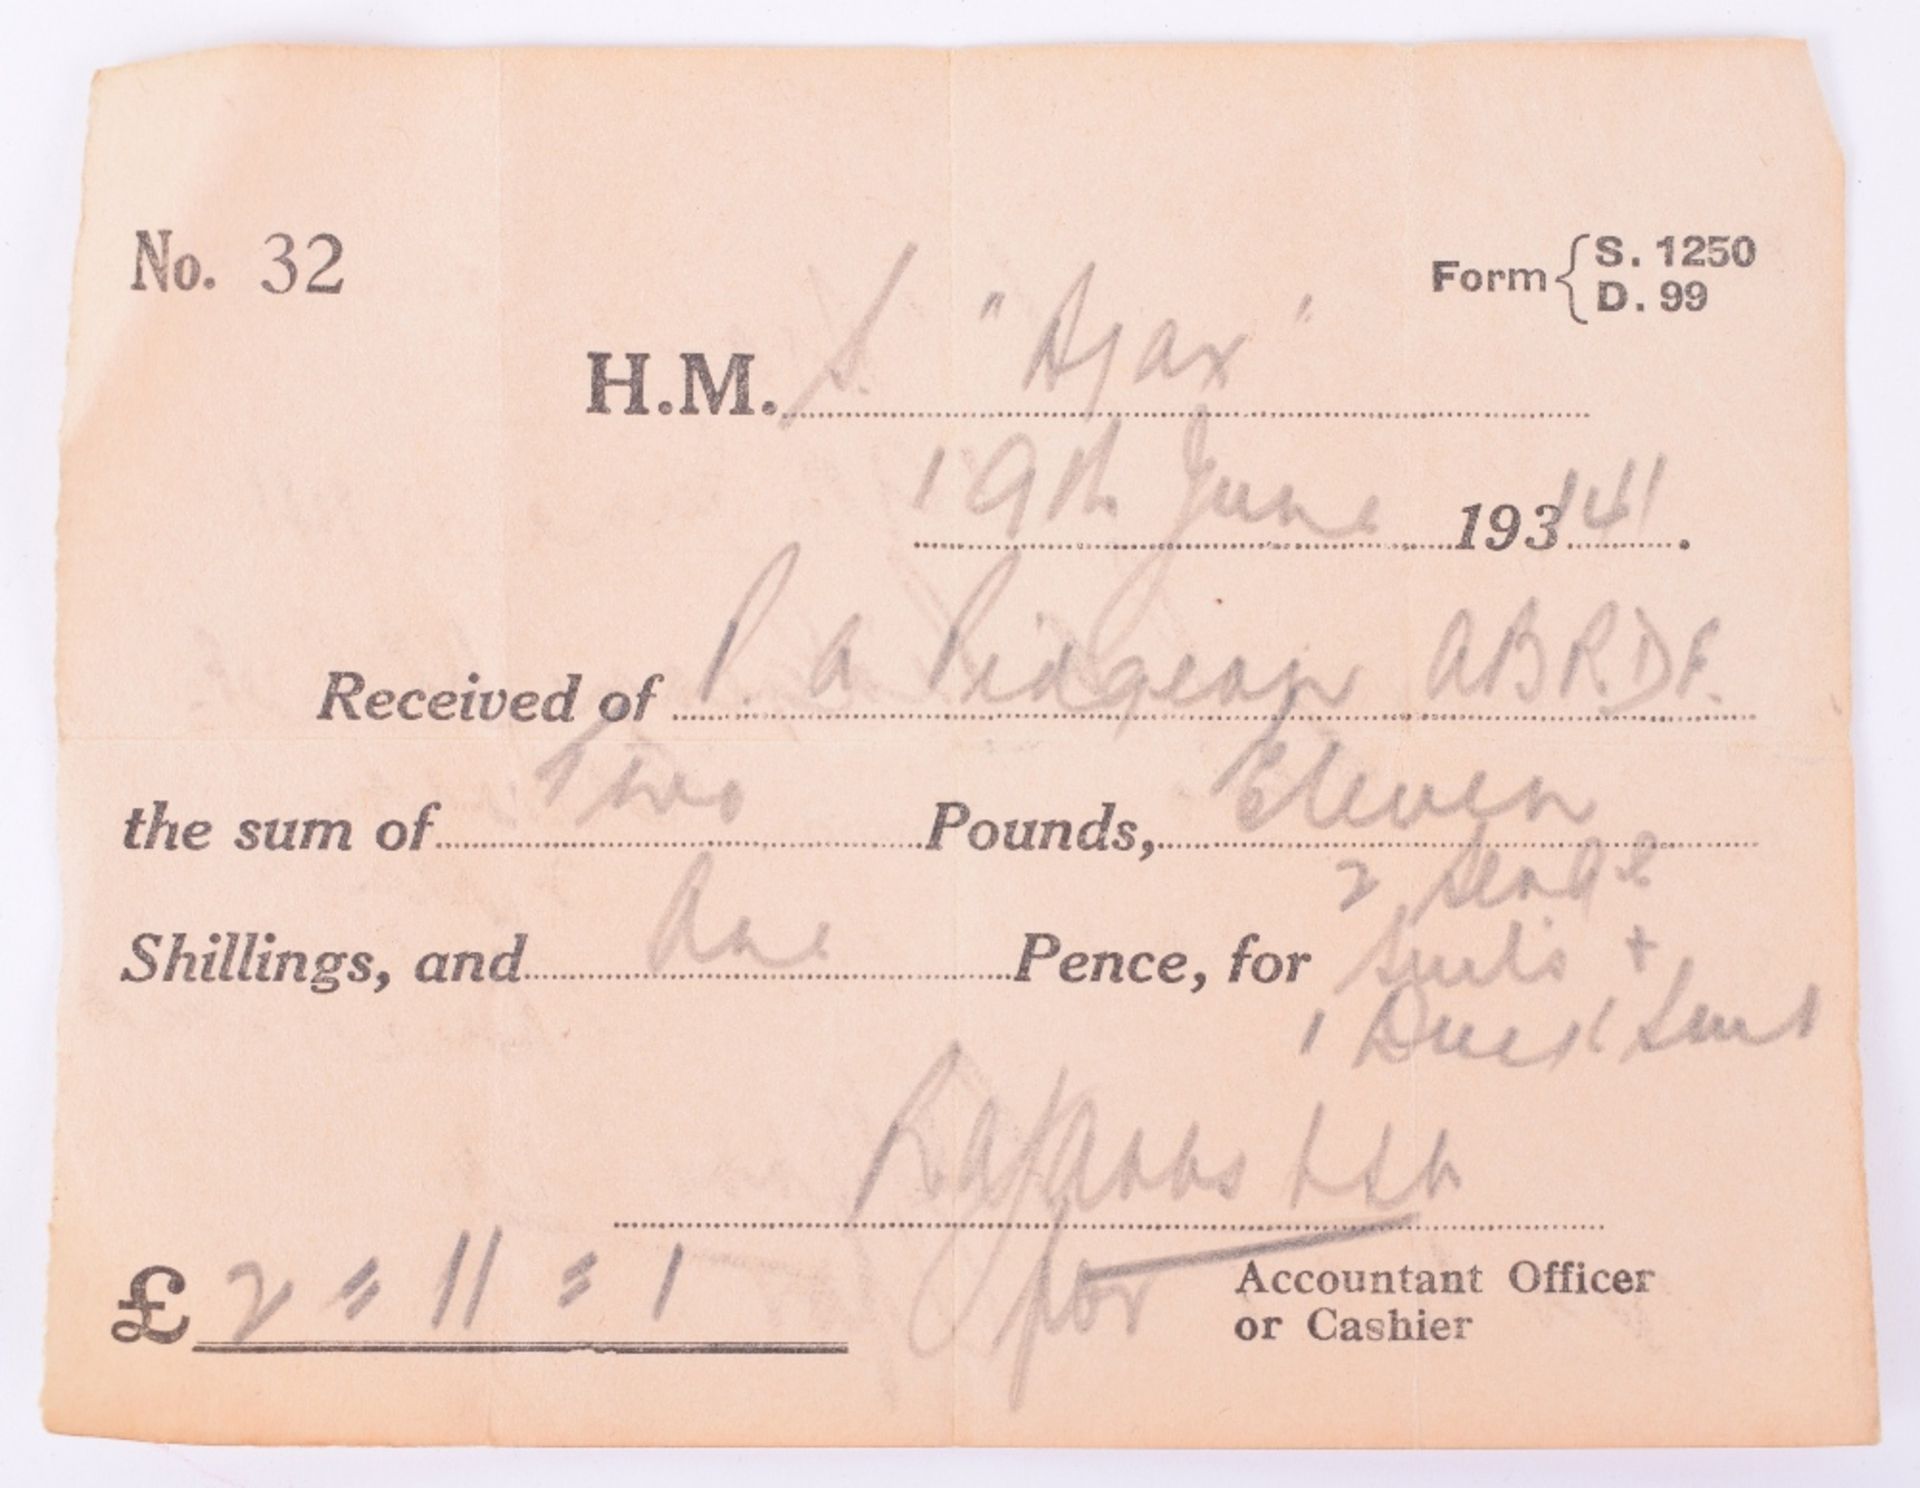 No. 32
Form { S. 1250
D. 99
H.M. S. "Ajax"
19th June 193/41.
Received of P. A Pidgeon ABRDF.
the sum of Two Pounds, Eleven
Shillings, and One Pence, for 2 Serge
Suits +
1 Duck Suit
£ 2 = 11 = 1
for
Accountant Officer
or Cashier